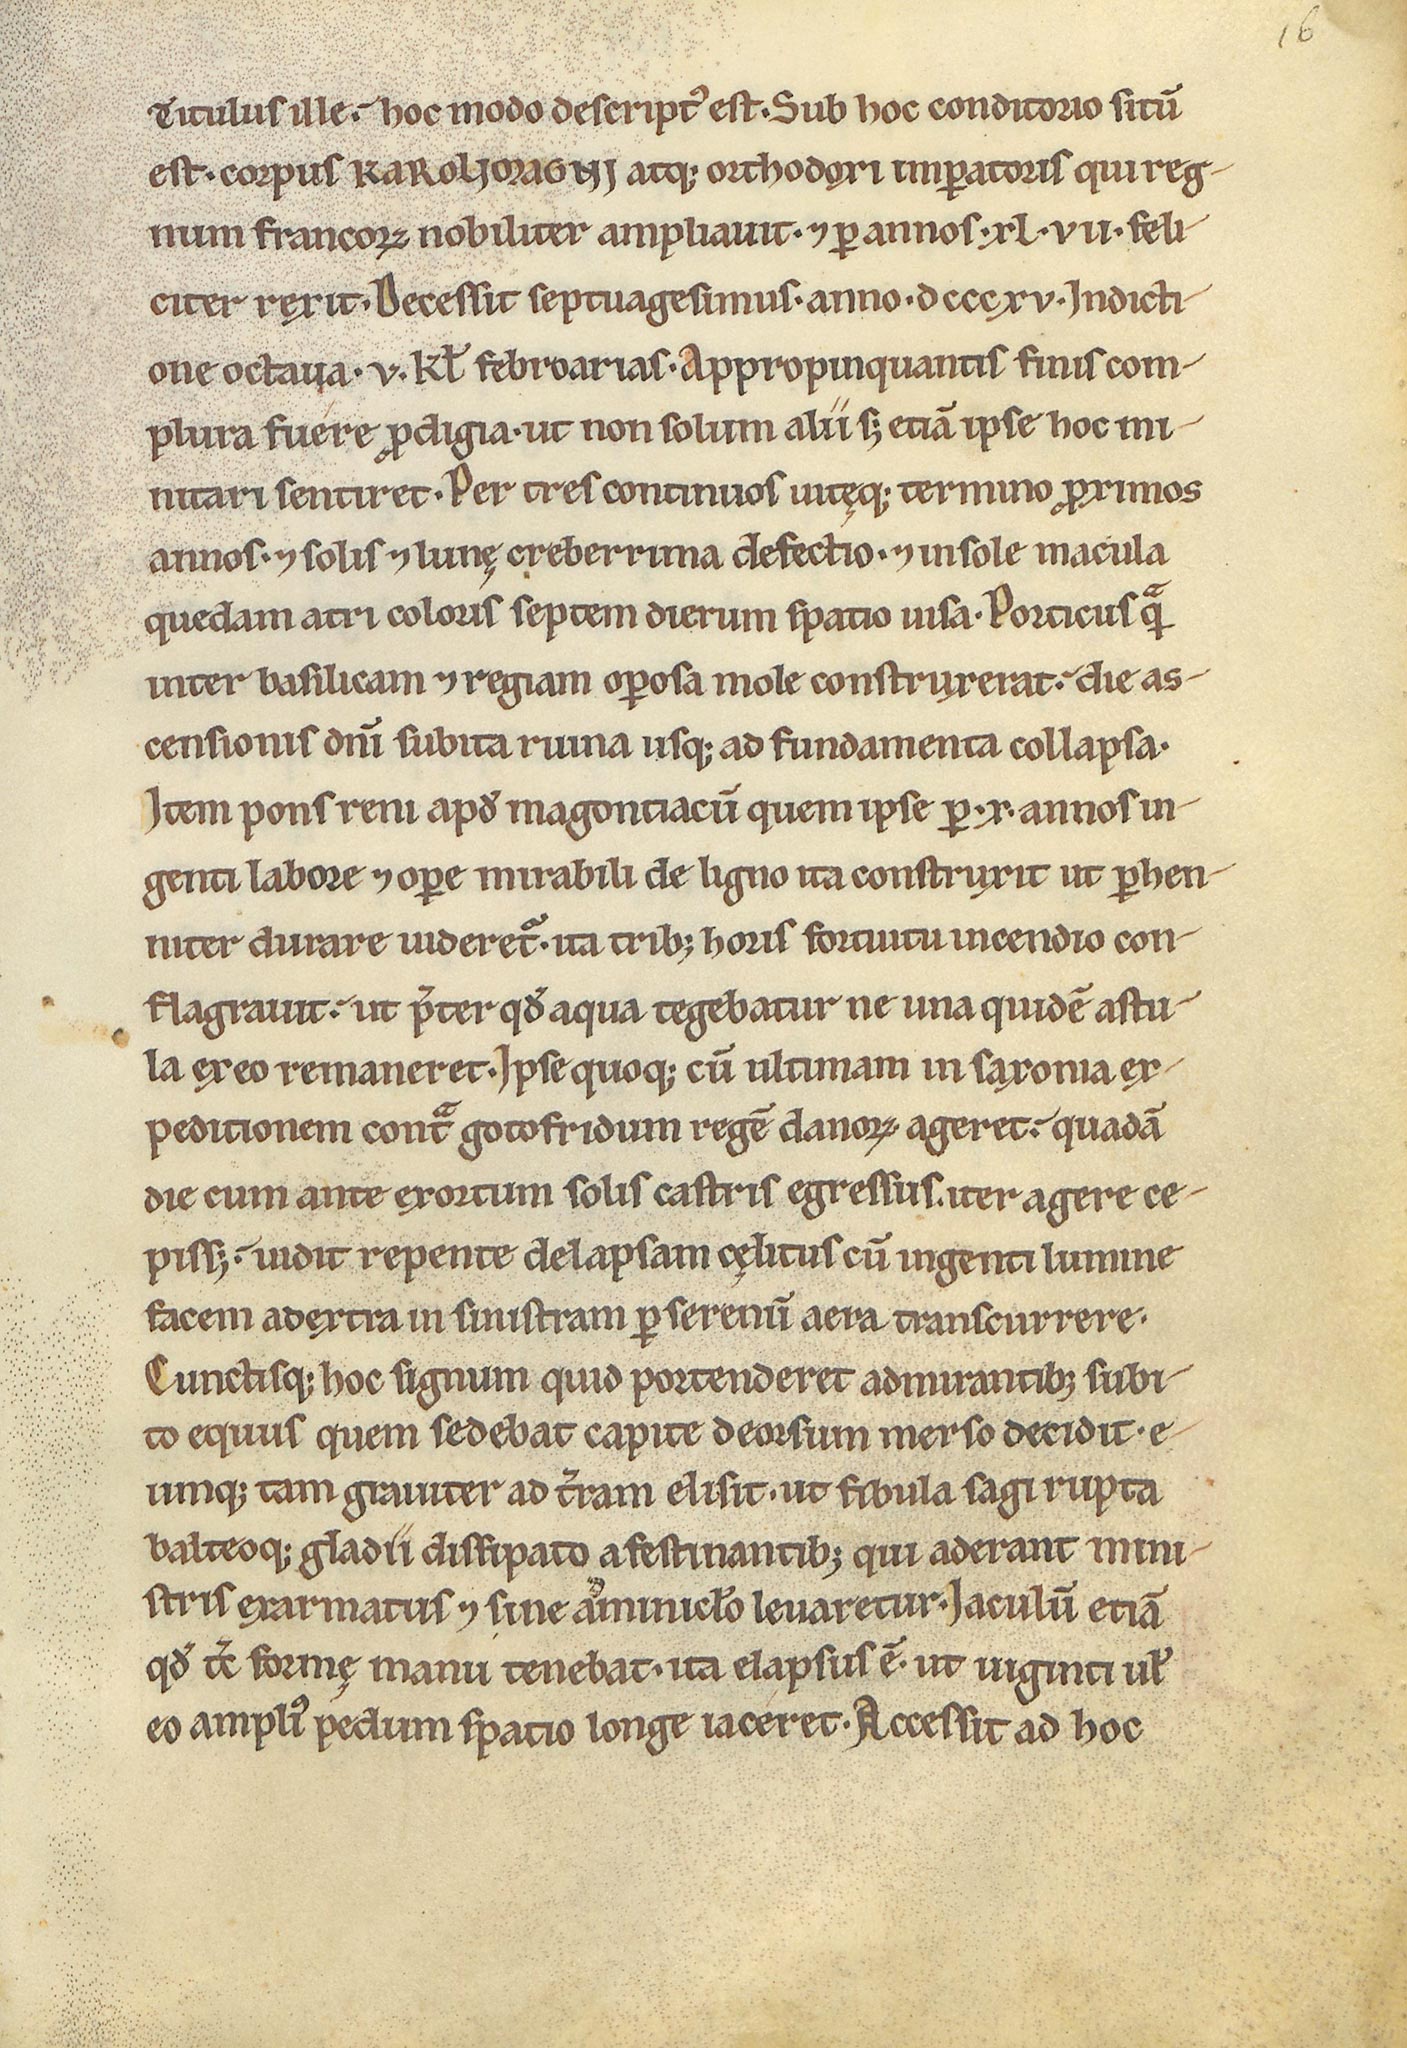 16
Titulus ille. hoc modo descript᾽ est. Sub hoc conditorio sitū
est. corpus KAROLI MAGNI atq; orthodoxi imꝑatoris qui reg-
num francoꝝ nobiliter ampliauit. ⁊ ꝑ annos. xl. vii. feli-
citer rexit. Decessit septuagesimus. anno. dcccxv. Indicti-
one octaua. v. kł februarias. Appropinquantis finis com-
plura fuére ꝓdigia. ut non solum alii sꝫ etiā ipse hoc mi-
nitari sentiret. Per tres continuos uitęq; termino ꝓximos
annos. ⁊ solis ⁊ lunę creberrima defectio. ⁊ in sole macula
quedam atri coloris septem dierum spatio uisa. Porticus qͣ
inter basilicam ⁊ regiam oꝑosa mole construxerat. die as-
censionis dn̄i subita ruina usq; ad fundamenta collapsa.
Item pons reni apd̓ magontiacū quem ipse ꝑ. x. annos in-
genti labore ⁊ oꝑe mirabili de ligno ita construxit ut ꝑhen-
niter durare uideret᷑. ita tribꝫ horis fortuitu incendio con-
flagrauit. ut p̄ter qd̓ aqua tegebatur ne una quidē astu-
la ex eo remaneret. Ipse quoq; cū ultimam in saxonia ex-
peditionem contͣ gotofridum regē danoꝝ ageret. quadā
die cum ante exortum solis castris egressus. iter agere ce-
pissꝫ. uidit repente delapsam cęlitus cū ingenti lumine
facem a dextra in sinistram ꝑ serenū aera transcurrere.
Cunctisq; hoc signum quid portenderet admirantibꝫ subi-
to equus quem sedebat capite deorsum merso decidit. e-
umq; tam grauiter ad t̄ram elisit. ut fibula sagi rupta
balteoq; gladii dissipato a festinantibꝫ qui aderant mini-
stris exarmatus ⁊ sine amminicł̓o leuaretur. Iaculū etiā
qd̓ tc̄ formę manu tenebat. ita elapsus ē. ut uiginti uł
eo ampli᾽ pedum spatio longe iacéret. Accessit ad hoc